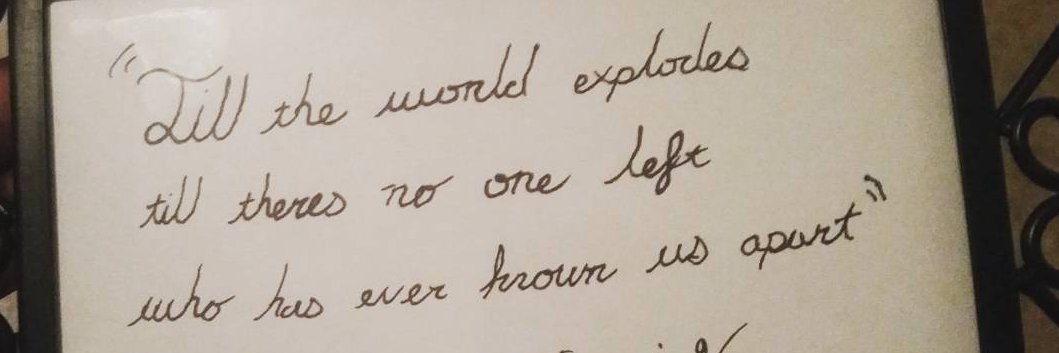 "Till the world explodes
till theres no one left
who has ever known us apart"